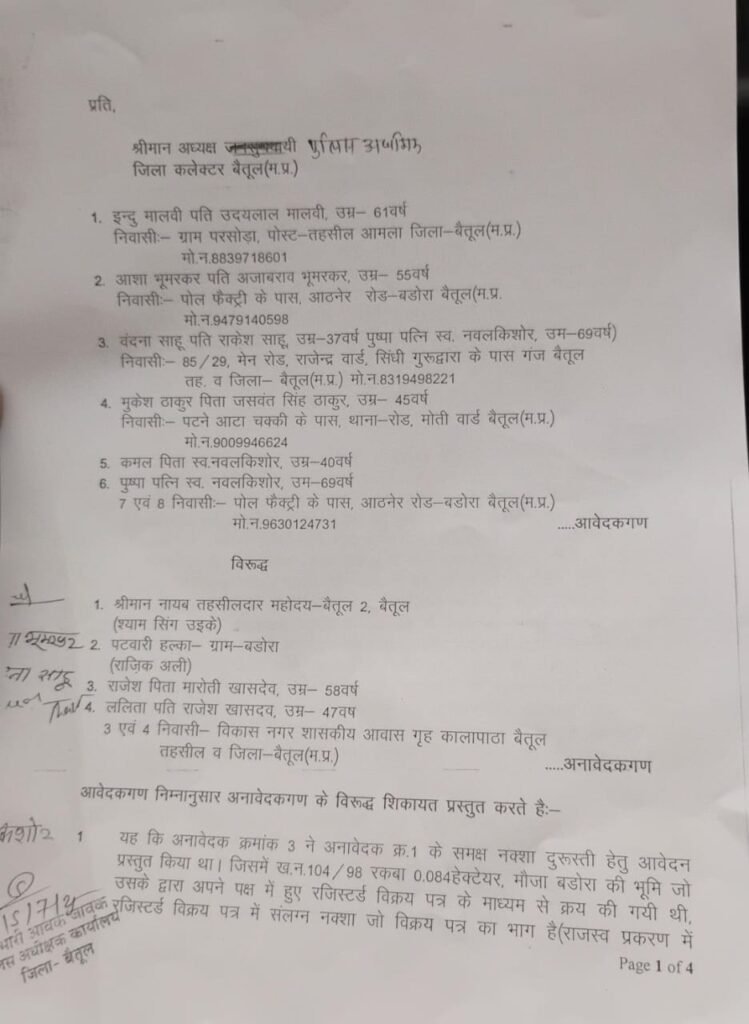 प्रति,
श्रीमान अध्यक्ष
जिला कलेक्टर बैतूल(म.प्र.)
1. इन्दु मालवी पति उदयलाल मालवी, उम्र– 61वर्ष
निवासीः– ग्राम परसोड़ा, पोस्ट–तहसील आमला जिला–बैतूल(म.प्र.)
मो.न.8839718601
2. आशा भूमरकर पति अजाबराव भूमरकर, उम्र– 55वर्ष
निवासीः– पोल फैक्ट्री के पास, आठनेर रोड–बडोरा बैतूल(म.प्र.
मो.न.9479140598
3. वंदना साहू पति राकेश साहू, उम्र–37वर्ष पुष्पा पत्नि स्व. नवलकिशोर, उम–69वर्ष)
निवासीः– 85/29, मेन रोड, राजेन्द्र वार्ड, सिंधी गुरूद्वारा के पास गंज बैतूल
तह. व जिला– बैतूल(म.प्र.) मो.न.8319498221
4. मुकेश ठाकुर पिता जसवंत सिंह ठाकुर, उम्र– 45वर्ष
निवासीः– पटने आटा चक्की के पास, थाना–रोड, मोती वार्ड बैतूल(म.प्र.)
मो.न.9009946624
5. कमल पिता स्व.नवलकिशोर, उम्र–40वर्ष
6. पुष्पा पत्नि स्व. नवलकिशोर, उम–69वर्ष
7 एवं 8 निवासीः– पोल फैक्ट्री के पास, आठनेर रोड–बडोरा बैतूल(म.प्र.)
मो.न.9630124731 .....आवेदकगण
विरूद्ध
1. श्रीमान नायब तहसीलदार महोदय–बैतूल 2, बैतूल
(श्याम सिंग उइके)
2. पटवारी हल्का– ग्राम–बडोरा
(राज़िक अली)
साहू
3. राजेश पिता मारोती खासदेव, उम्र– 58वर्ष
4. ललिता पति राजेश खासदव, उम्र– 47वष
3 एवं 4 निवासी– विकास नगर शासकीय आवास गृह कालापाठा बैतूल
तहसील व जिला–बैतूल(म.प्र.) .....अनावेदकगण
आवेदकगण निम्नानुसार अनावेदकगण के विरूद्ध शिकायत प्रस्तुत करते हैः–
1 यह कि अनावेदक क्रमांक 3 ने अनावेदक क्र.1 के समक्ष नक्शा दुरूस्ती हेतु आवेदन
प्रस्तुत किया था। जिसमें ख.न.104/98 रकबा 0.084हेक्टेयर, मौजा बडोरा की भूमि जो
उसके द्वारा अपने पक्ष में हुए रजिस्टर्ड विक्रय पत्र के माध्यम से क्रय की गयी थी,
रजिस्टर्ड विक्रय पत्र में संलग्न नक्शा जो विक्रय पत्र का भाग है(राजस्व प्रकरण में
भारी आवक जावक
अधीक्षक कार्यालय
जिला- बैतूल
Page 1 of 4